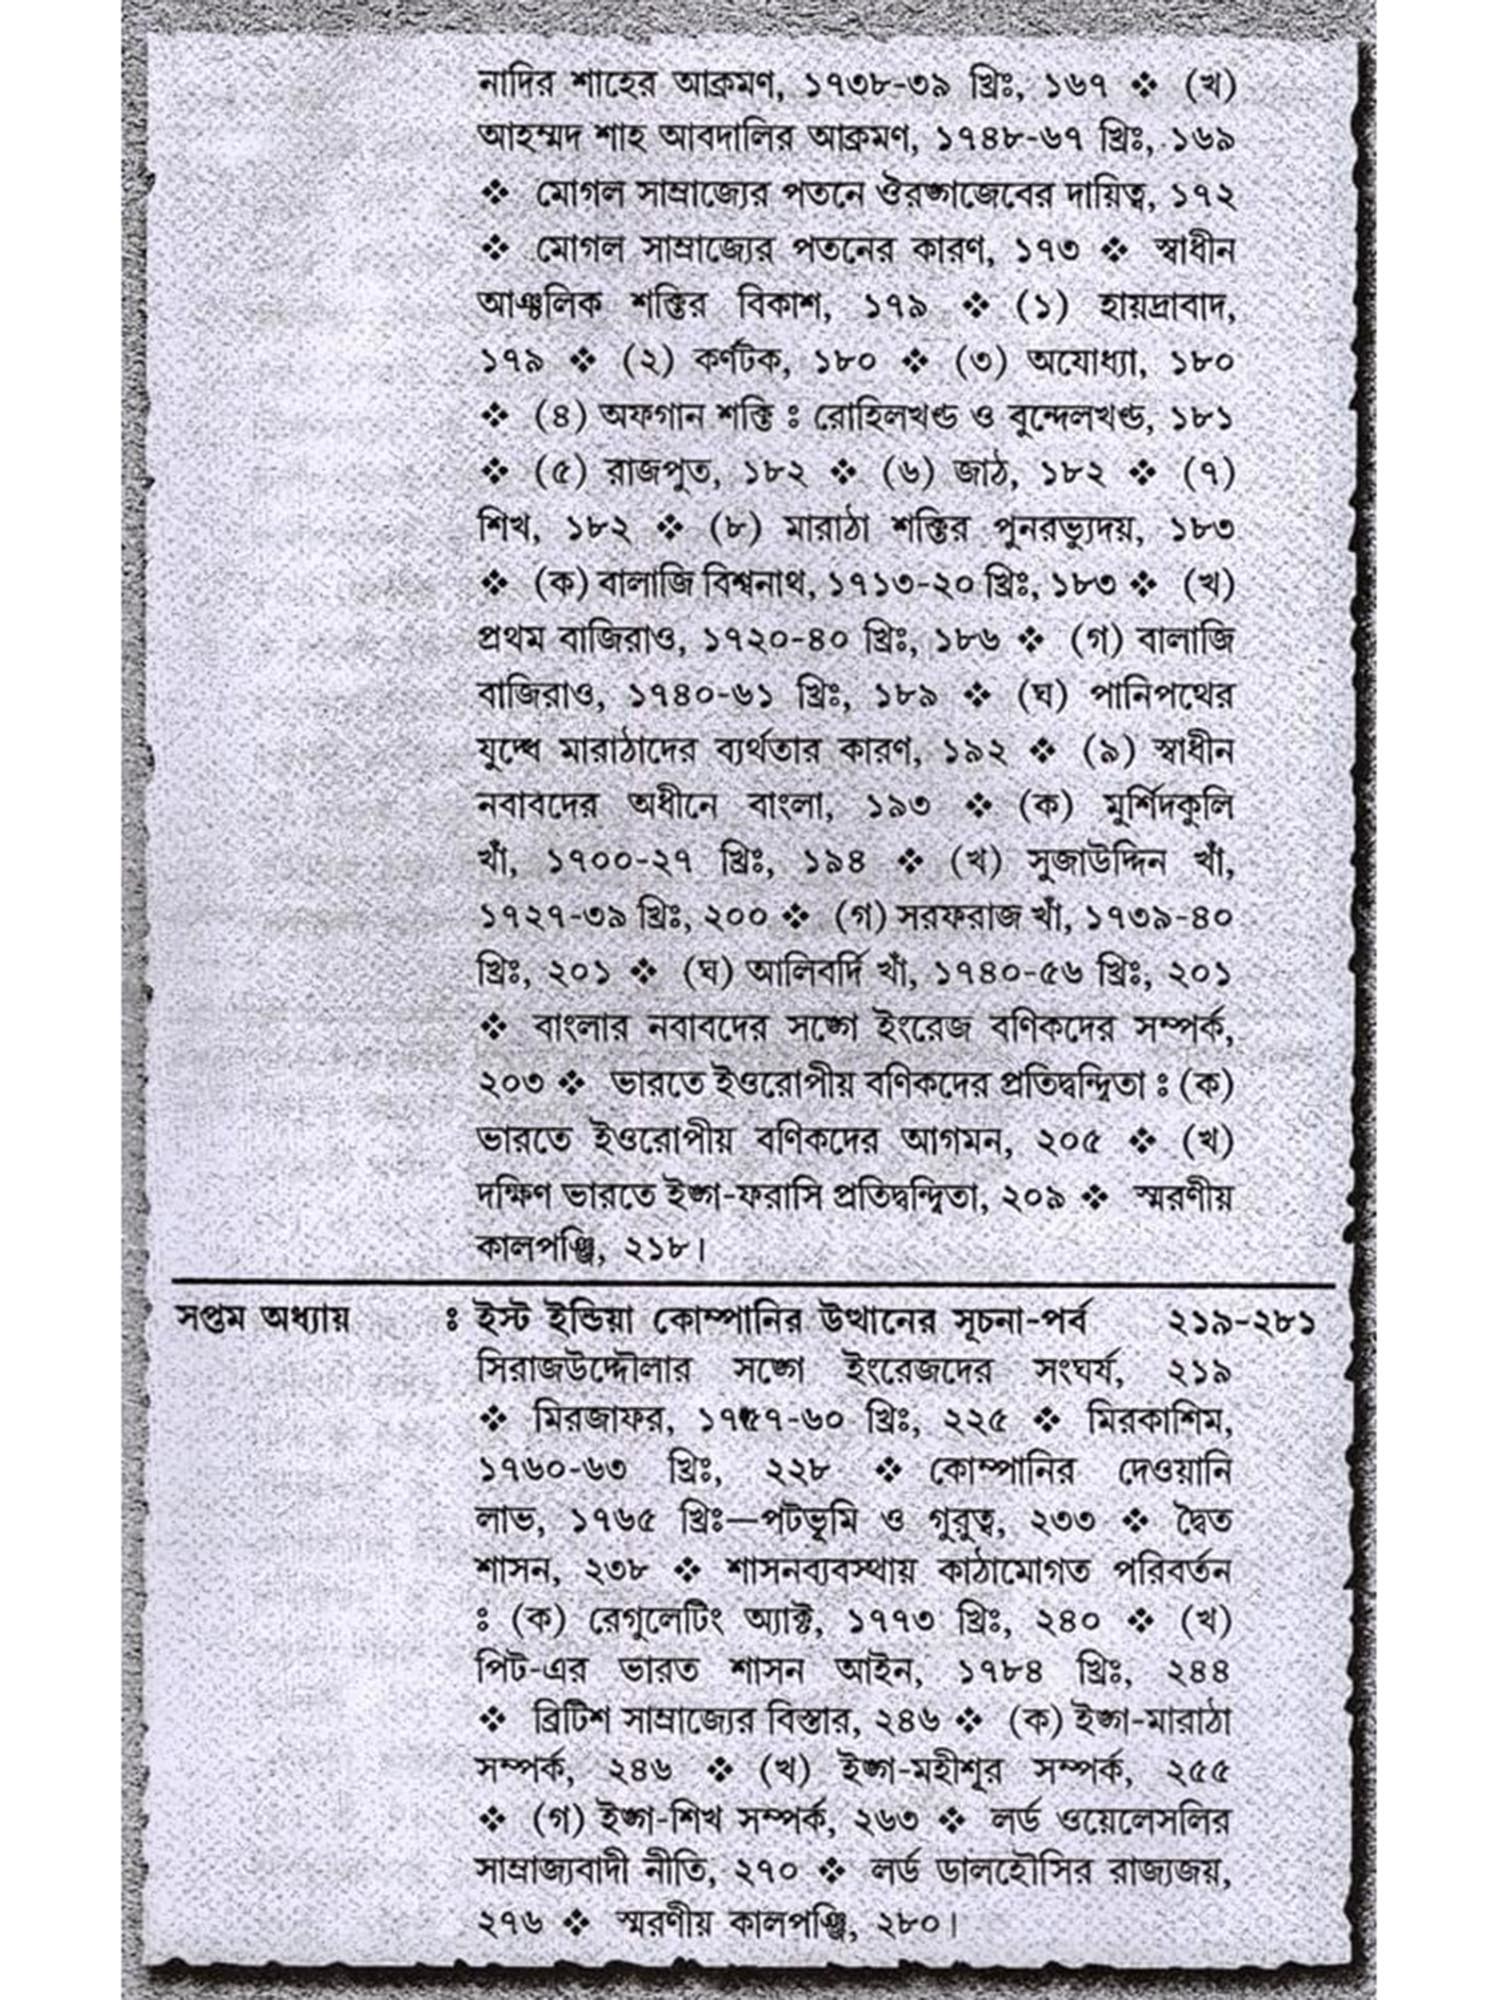 নাদির শাহের আক্রমণ, ১৭৩৮-৩৯ খ্রিঃ, ১৬৭ ❖ (খ)
আহম্মদ শাহ আবদালির আক্রমণ, ১৭৪৮-৬৭ খ্রিঃ, ১৬৯
❖ মোগল সাম্রাজ্যের পতনে ঔরঙ্গজেবের দায়িত্ব, ১৭২
❖ মোগল সাম্রাজ্যের পতনের কারণ, ১৭৩ ❖ স্বাধীন
আঞ্চলিক শক্তির বিকাশ, ১৭৯ ❖ (১) হায়দ্রাবাদ,
১৭৯ ❖ (২) কর্ণটক, ১৮০ ❖ (৩) অযোধ্যা, ১৮০
❖ (৪) অফগান শক্তি ঃ রোহিলখণ্ড ও বুন্দেলখণ্ড, ১৮১
❖ (৫) রাজপুত, ১৮২ ❖ (৬) জাঠ, ১৮২ ❖ (৭)
শিখ, ১৮২ ❖ (৮) মারাঠা শক্তির পুনরভ্যুদয়, ১৮৩
❖ (ক) বালাজি বিশ্বনাথ, ১৭১৩-২০ খ্রিঃ, ১৮৩ ❖ (খ)
প্রথম বাজিরাও, ১৭২০-৪০ খ্রিঃ, ১৮৬ ❖ (গ) বালাজি
বাজিরাও, ১৭৪০-৬১ খ্রিঃ, ১৮৯ ❖ (ঘ) পানিপথের
যুদ্ধে মারাঠাদের ব্যর্থতার কারণ, ১৯২ ❖ (৯) স্বাধীন
নবাবদের অধীনে বাংলা, ১৯৩ ❖ (ক) মুর্শিদকুলি
খাঁ, ১৭০০-২৭ খ্রিঃ, ১৯৪ ❖ (খ) সুজাউদ্দিন খাঁ,
১৭২৭-৩৯ খ্রিঃ, ২০০ ❖ (গ) সরফরাজ খাঁ, ১৭৩৯-৪০
খ্রিঃ, ২০১ ❖ (ঘ) আলিবর্দি খাঁ, ১৭৪০-৫৬ খ্রিঃ, ২০১
❖ বাংলার নবাবদের সঙ্গে ইংরেজ বণিকদের সম্পর্ক,
২০৩ ❖ ভারতে ইওরোপীয় বণিকদের প্রতিদ্বন্দ্বিতা ঃ (ক)
ভারতে ইওরোপীয় বণিকদের আগমন, ২০৫ ❖ (খ)
দক্ষিণ ভারতে ইঙ্গ-ফরাসি প্রতিদ্বন্দ্বিতা, ২০৯ ❖ স্মরণীয়
কালপঞ্জি, ২১৮।
সপ্তম অধ্যায় ঃ ইস্ট ইন্ডিয়া কোম্পানির উত্থানের সূচনা-পর্ব ২১৯-২৮১
সিরাজউদ্দৌলার সঙ্গে ইংরেজদের সংঘর্ষ, ২১৯
❖ মিরজাফর, ১৭৫৭-৬০ খ্রিঃ, ২২৫ ❖ মিরকাশিম,
১৭৬০-৬৩ খ্রিঃ, ২২৮ ❖ কোম্পানির দেওয়ানি
লাভ, ১৭৬৫ খ্রিঃ—পটভূমি ও গুরুত্ব, ২৩৩ ❖ দ্বৈত
শাসন, ২৩৮ ❖ শাসনব্যবস্থায় কাঠামোগত পরিবর্তন
ঃ (ক) রেগুলেটিং অ্যাক্ট, ১৭৭৩ খ্রিঃ, ২৪০ ❖ (খ)
পিট-এর ভারত শাসন আইন, ১৭৮৪ খ্রিঃ, ২৪৪
❖ ব্রিটিশ সাম্রাজ্যের বিস্তার, ২৪৬ ❖ (ক) ইঙ্গ-মারাঠা
সম্পর্ক, ২৪৬ ❖ (খ) ইঙ্গ-মহীশূর সম্পর্ক, ২৫৫
❖ (গ) ইঙ্গ-শিখ সম্পর্ক, ২৬৩ ❖ লর্ড ওয়েলেসলির
সাম্রাজ্যবাদী নীতি, ২৭০ ❖ লর্ড ডালহৌসির রাজ্যজয়,
২৭৬ ❖ স্মরণীয় কালপঞ্জি, ২৮০।